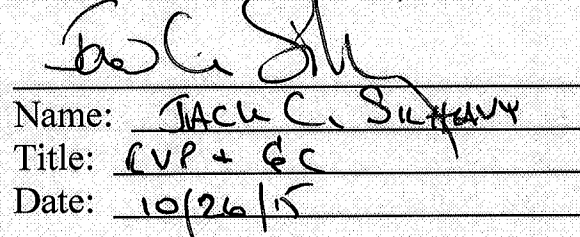 Name: JACK C. SILHEAVY
Title: EVP + GC
Date: 10/26/15